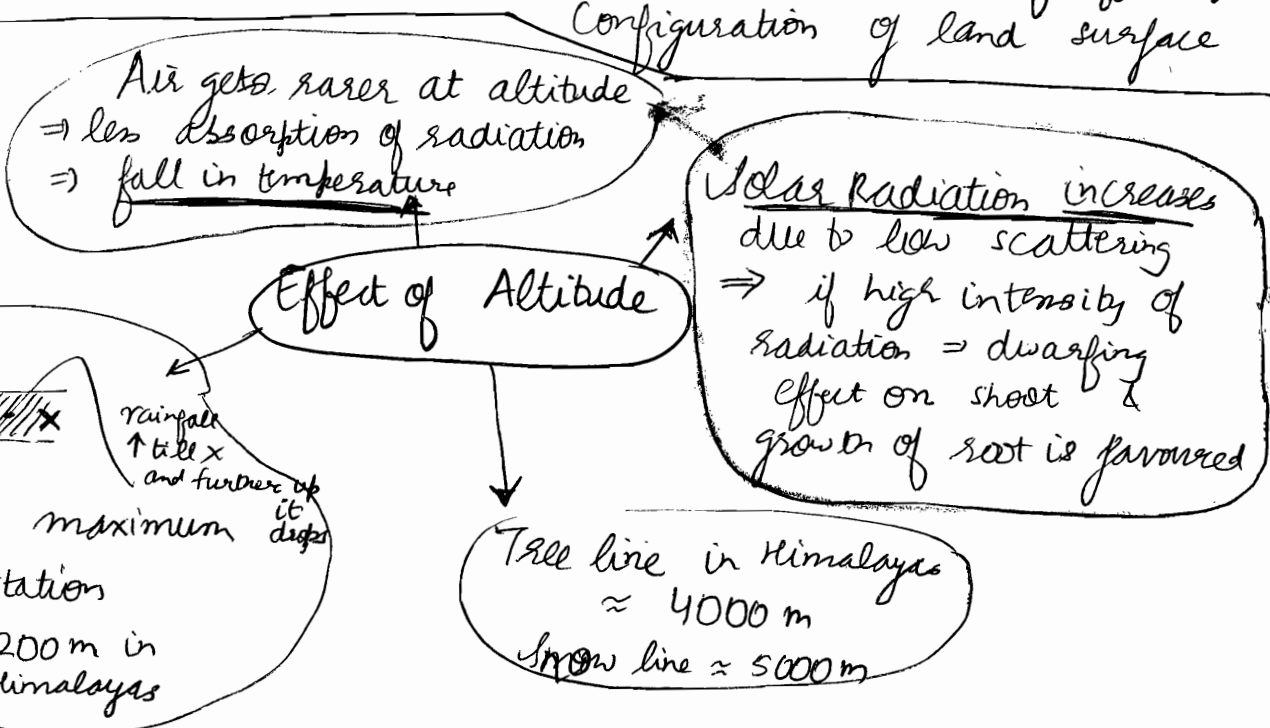 Configuration of land surface
Air gets rarer at altitude
⇒ less absorption of radiation
⇒ fall in temperature
Solar Radiation increases
due to low scattering
⇒ if high intensity of
radiation ⇒ dwarfing
effect on shoot &
growth of root is favoured
Effect of Altitude
rainfall
↑ till x
and further up
it
drops
maximum
tation
200 m in
Himalayas
Tree line in Himalayas
≈ 4000 m
Snow line ≈ 5000 m